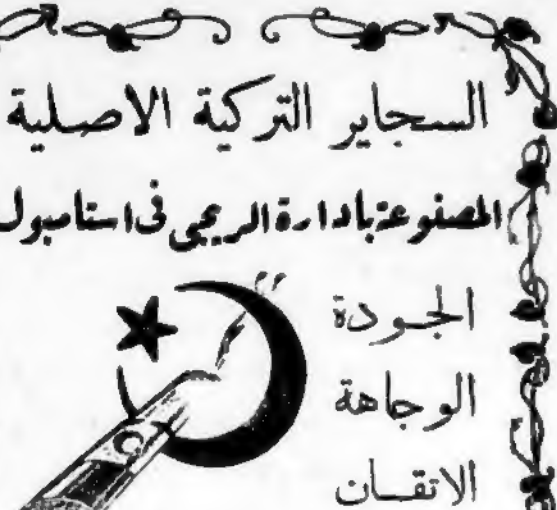 السجاير التركية الاصلية
المصنوعة بادارة الريجى فى استامبول
الجودة
الوجاهة
الاتقان